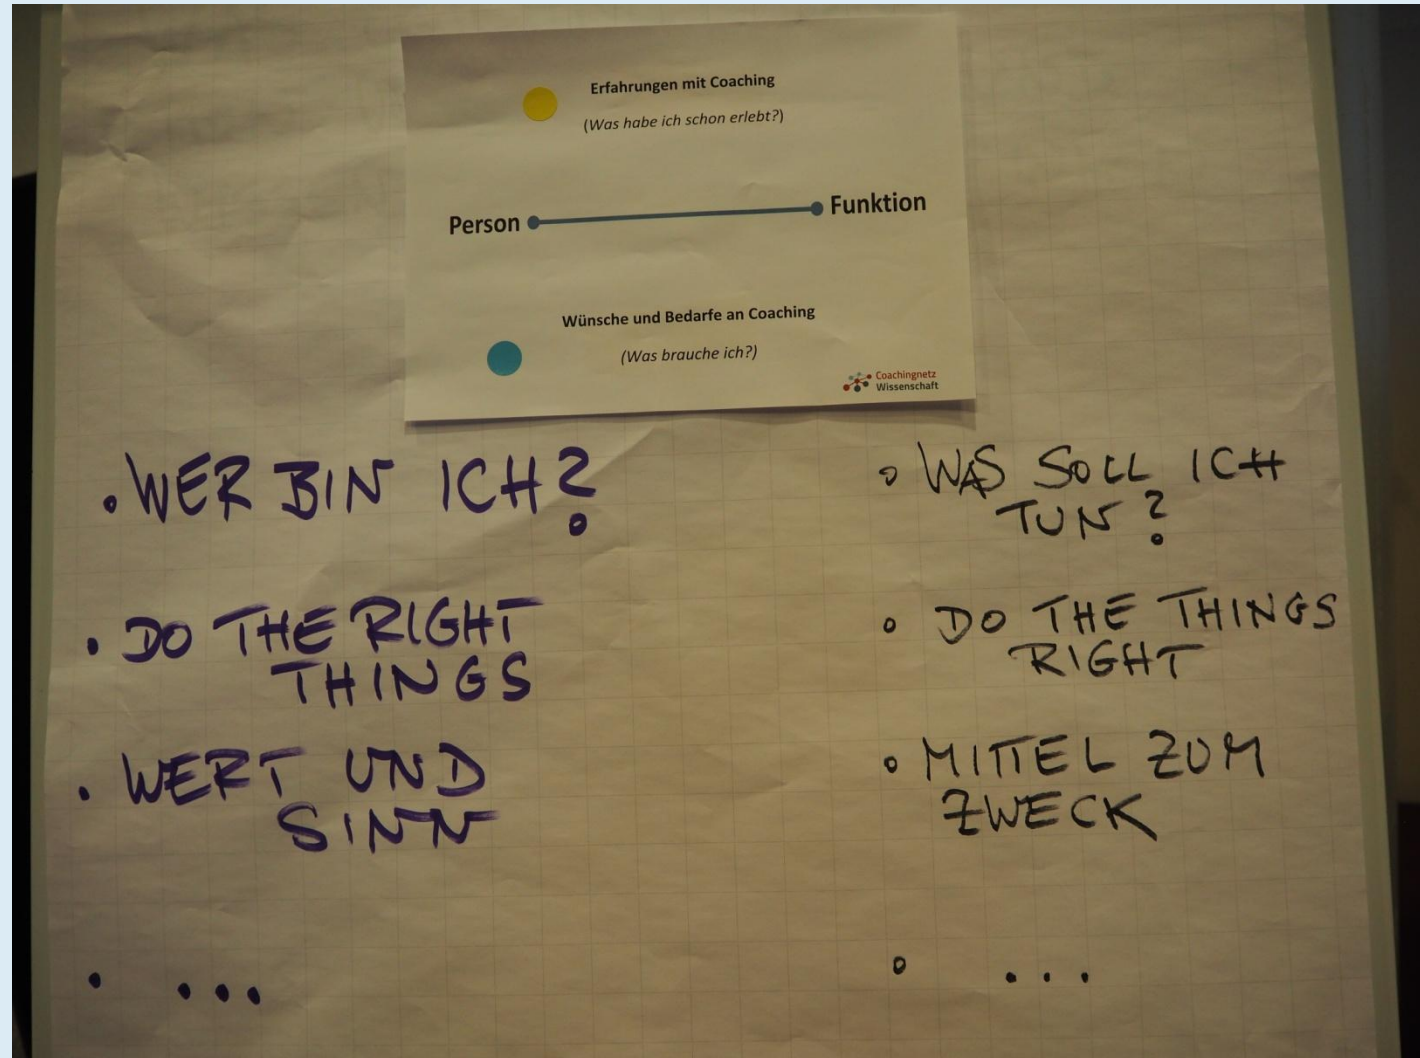 Erfahrungen mit Coaching
(Was habe ich schon erlebt?)
Person
Funktion
Wünsche und Bedarfe an Coaching
(Was brauche ich?)
Coachingnetz
Wissenschaft
• WER BIN ICH?
• DO THE RIGHT
THINGS
• WERT UND
SINN
• ...
• WAS SOLL ICH
TUN?
• DO THE THINGS
RIGHT
• MITTEL ZUM
ZWECK
• ...